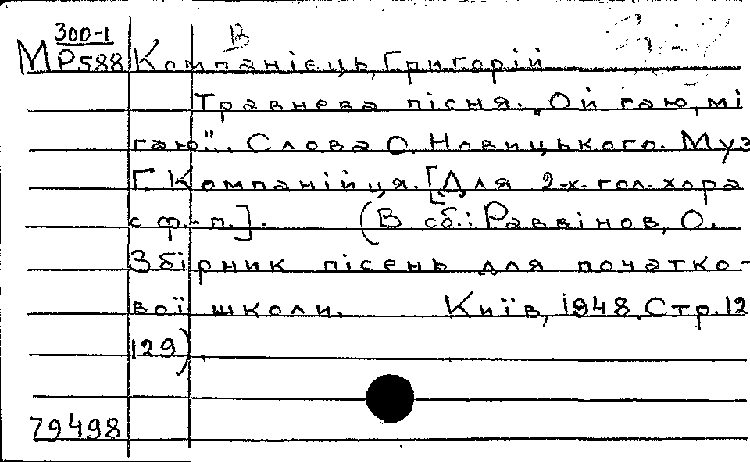 300-1 В
М Р588 Компанієць, Григорій
Травнева пісня. „Ой гаю, мі
гаю". Слова О. Новицького. Муз
Г. Компанійця. [Для 2-х-гол. хора
с ф.-п.]. (В сб.: Раввінов, О.
Збірник пісень для початко-
вої школи. Київ, 1948. Стр. 12
129).
79498